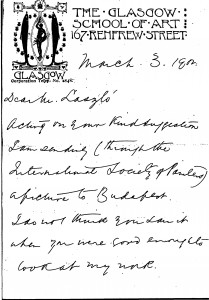 THE GLASGOW
SCHOOL OF ART
167 RENFREW STREET
GLASGOW
Corporation Telep. No.
March 3. 190
Dear Mr. László
Acting on your kind suggestion
I am sending (through the
International Society of Painters)
a picture to Budapest.
I do not think you saw it
when you were good enough to
look at my work.